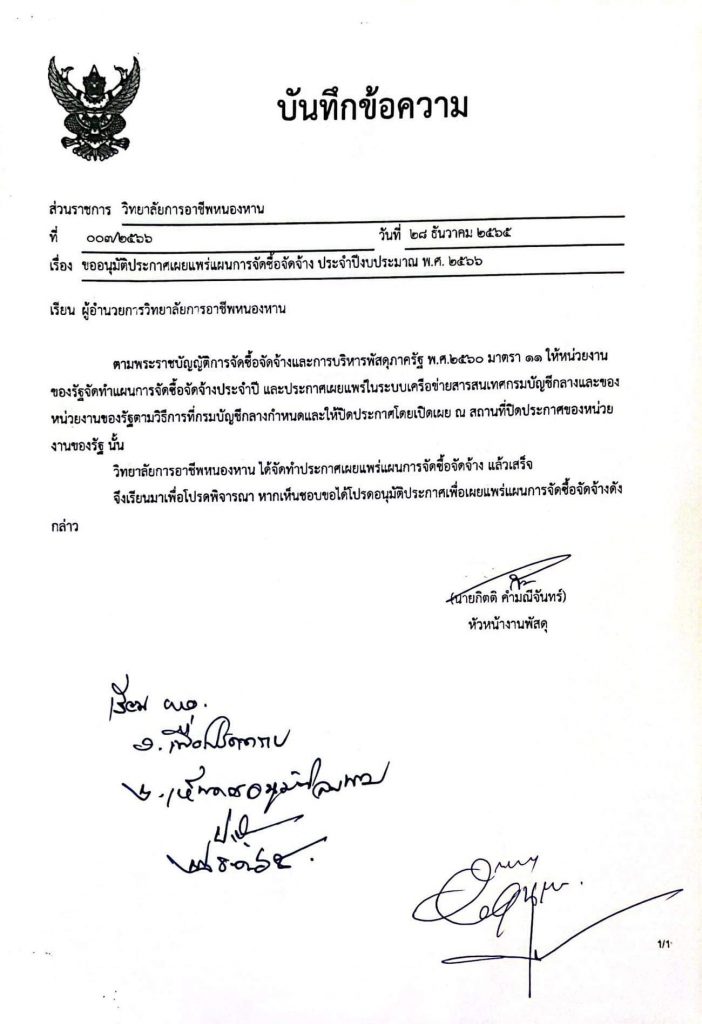 บันทึกข้อความ
ส่วนราชการ วิทยาลัยการอาชีพหนองหาน
ที่ ๐๐๓/๒๕๖๖ วันที่ ๒๘ ธันวาคม ๒๕๖๕
เรื่อง ขออนุมัติประกาศเผยแพร่แผนการจัดซื้อจัดจ้าง ประจำปีงบประมาณ พ.ศ. ๒๕๖๖
เรียน ผู้อำนวยการวิทยาลัยการอาชีพหนองหาน
ตามพระราชบัญญัติการจัดซื้อจัดจ้างและการบริหารพัสดุภาครัฐ พ.ศ.๒๕๖๐ มาตรา ๑๑ ให้หน่วยงาน
ของรัฐจัดทำแผนการจัดซื้อจัดจ้างประจำปี และประกาศเผยแพร่ในระบบเครือข่ายสารสนเทศกรมบัญชีกลางและของ
หน่วยงานของรัฐตามวิธีการที่กรมบัญชีกลางกำหนดและให้ปิดประกาศโดยเปิดเผย ณ สถานที่ปิดประกาศของหน่วย
งานของรัฐ นั้น
วิทยาลัยการอาชีพหนองหาน ได้จัดทำประกาศเผยแพร่แผนการจัดซื้อจัดจ้าง แล้วเสร็จ
จึงเรียนมาเพื่อโปรดพิจารณา หากเห็นชอบขอได้โปรดอนุมัติประกาศเพื่อเผยแพร่แผนการจัดซื้อจัดจ้างดัง
กล่าว
(นายกิตติ คำมณีจันทร์)
หัวหน้างานพัสดุ
เรียน ผอ.
๑. เพื่อโปรดทราบ
๒. เห็นควรอนุมัติ
1/1